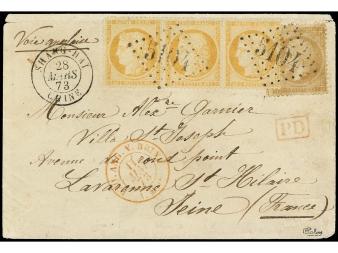 Voie anglaise
SHANG-HAI
28
MARS
73
CHINE
5104
5104
PD
Monsieur Alex.re Garnier
Villa St Joseph
Avenue de rond point
Lavarenne St Hilaire
Seine (France)